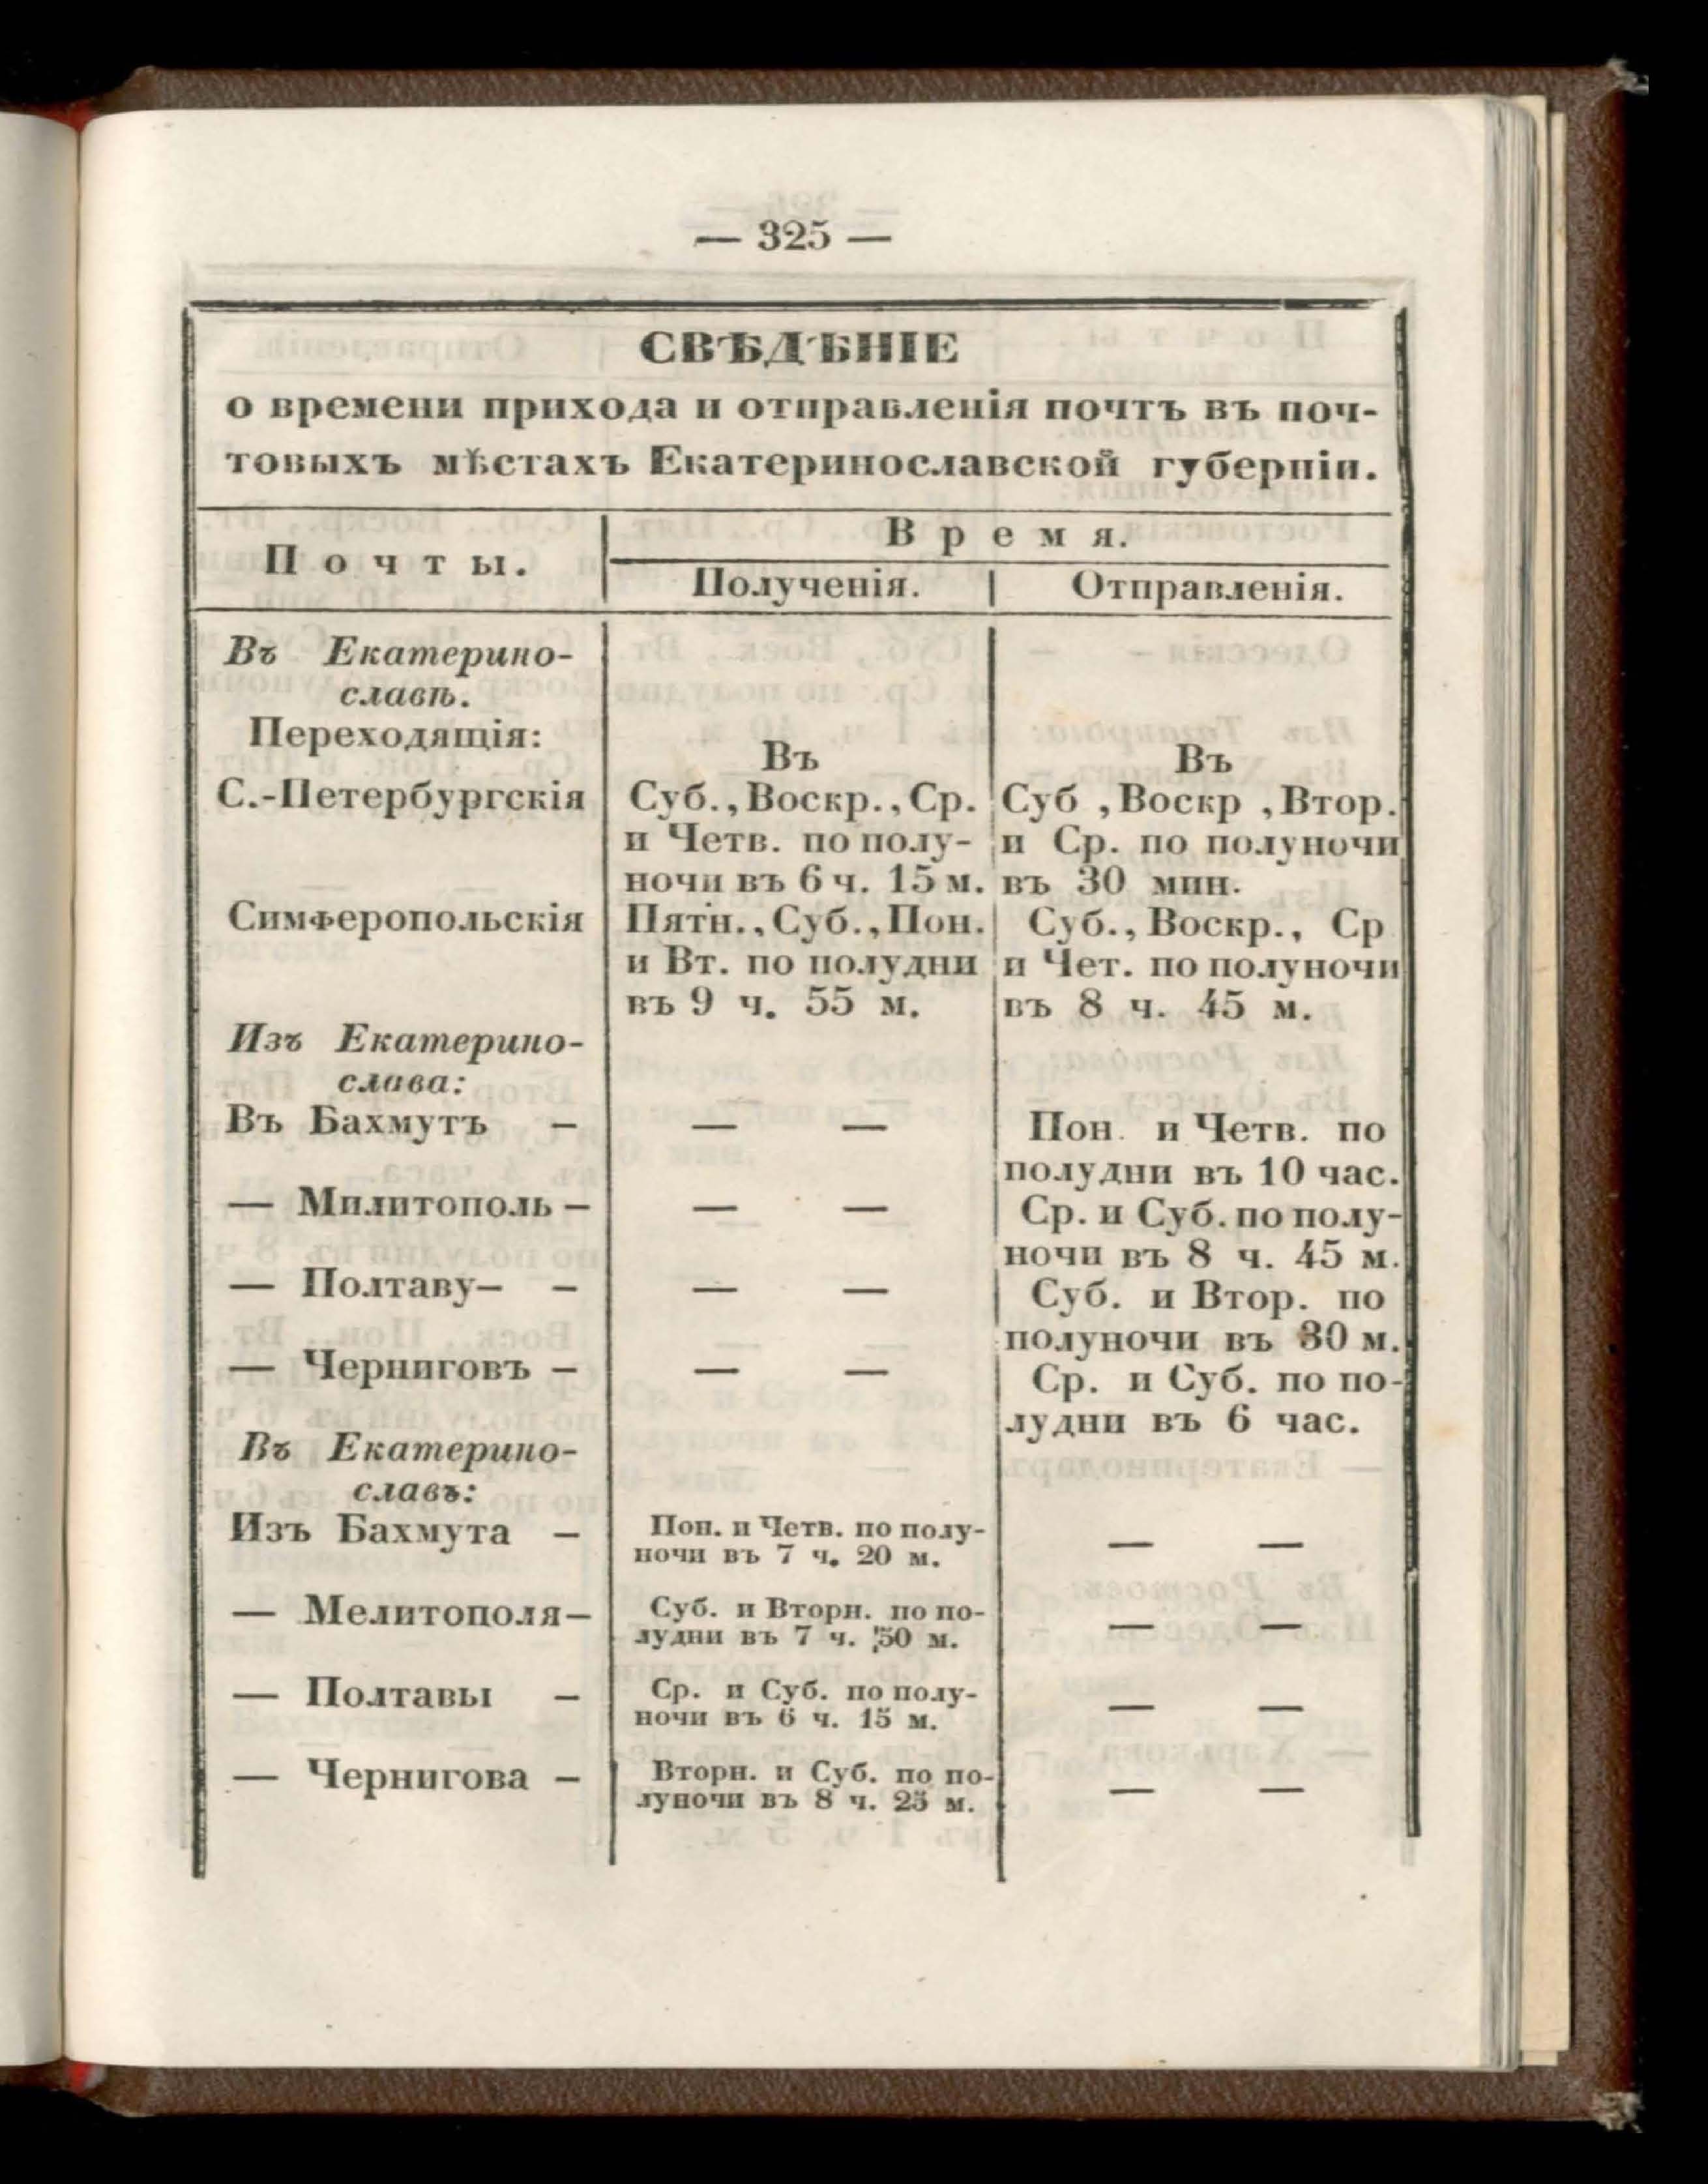 — 325 —
СВѢДѢНІЕ
о времени прихода и отправленія почтъ въ поч-
товыхъ мѣстахъ Екатеринославской губерніи.
Почты.
Время.
Полученія.
Отправленія.
Въ Екатерино-
славѣ.
Переходящія:
Въ
Въ
С.-Петербургскія
Суб., Воскр., Ср.
и Четв. по полу-
ночи въ 6 ч. 15 м.
Суб , Воскр , Втор.
и Ср. по полуночи
въ 30 мин.
Симферопольскія
Пятн., Суб., Пон.
и Вт. по полудни
въ 9 ч. 55 м.
Суб., Воскр., Ср
и Чет. по полуночи
въ 8 ч. 45 м.
Изъ Екатерино-
слава:
Въ Бахмутъ – — —
Пон. и Четв. по
полудни въ 10 час.
— Милитополь – — —
Ср. и Суб. по полу-
ночи въ 8 ч. 45 м.
— Полтаву – – — —
Суб. и Втор. по
полуночи въ 30 м.
— Черниговъ – — —
Ср. и Суб. по по-
лудни въ 6 час.
Въ Екатерино-
славъ:
Изъ Бахмута –
Пон. и Четв. по полу-
ночи въ 7 ч. 20 м.
— —
— Мелитополя –
Суб. и Вторн. по по-
лудни въ 7 ч. 50 м.
— —
— Полтавы –
Ср. и Суб. по полу-
ночи въ 6 ч. 15 м.
— —
— Чернигова –
Вторн. и Суб. по по-
луночи въ 8 ч. 25 м.
— —